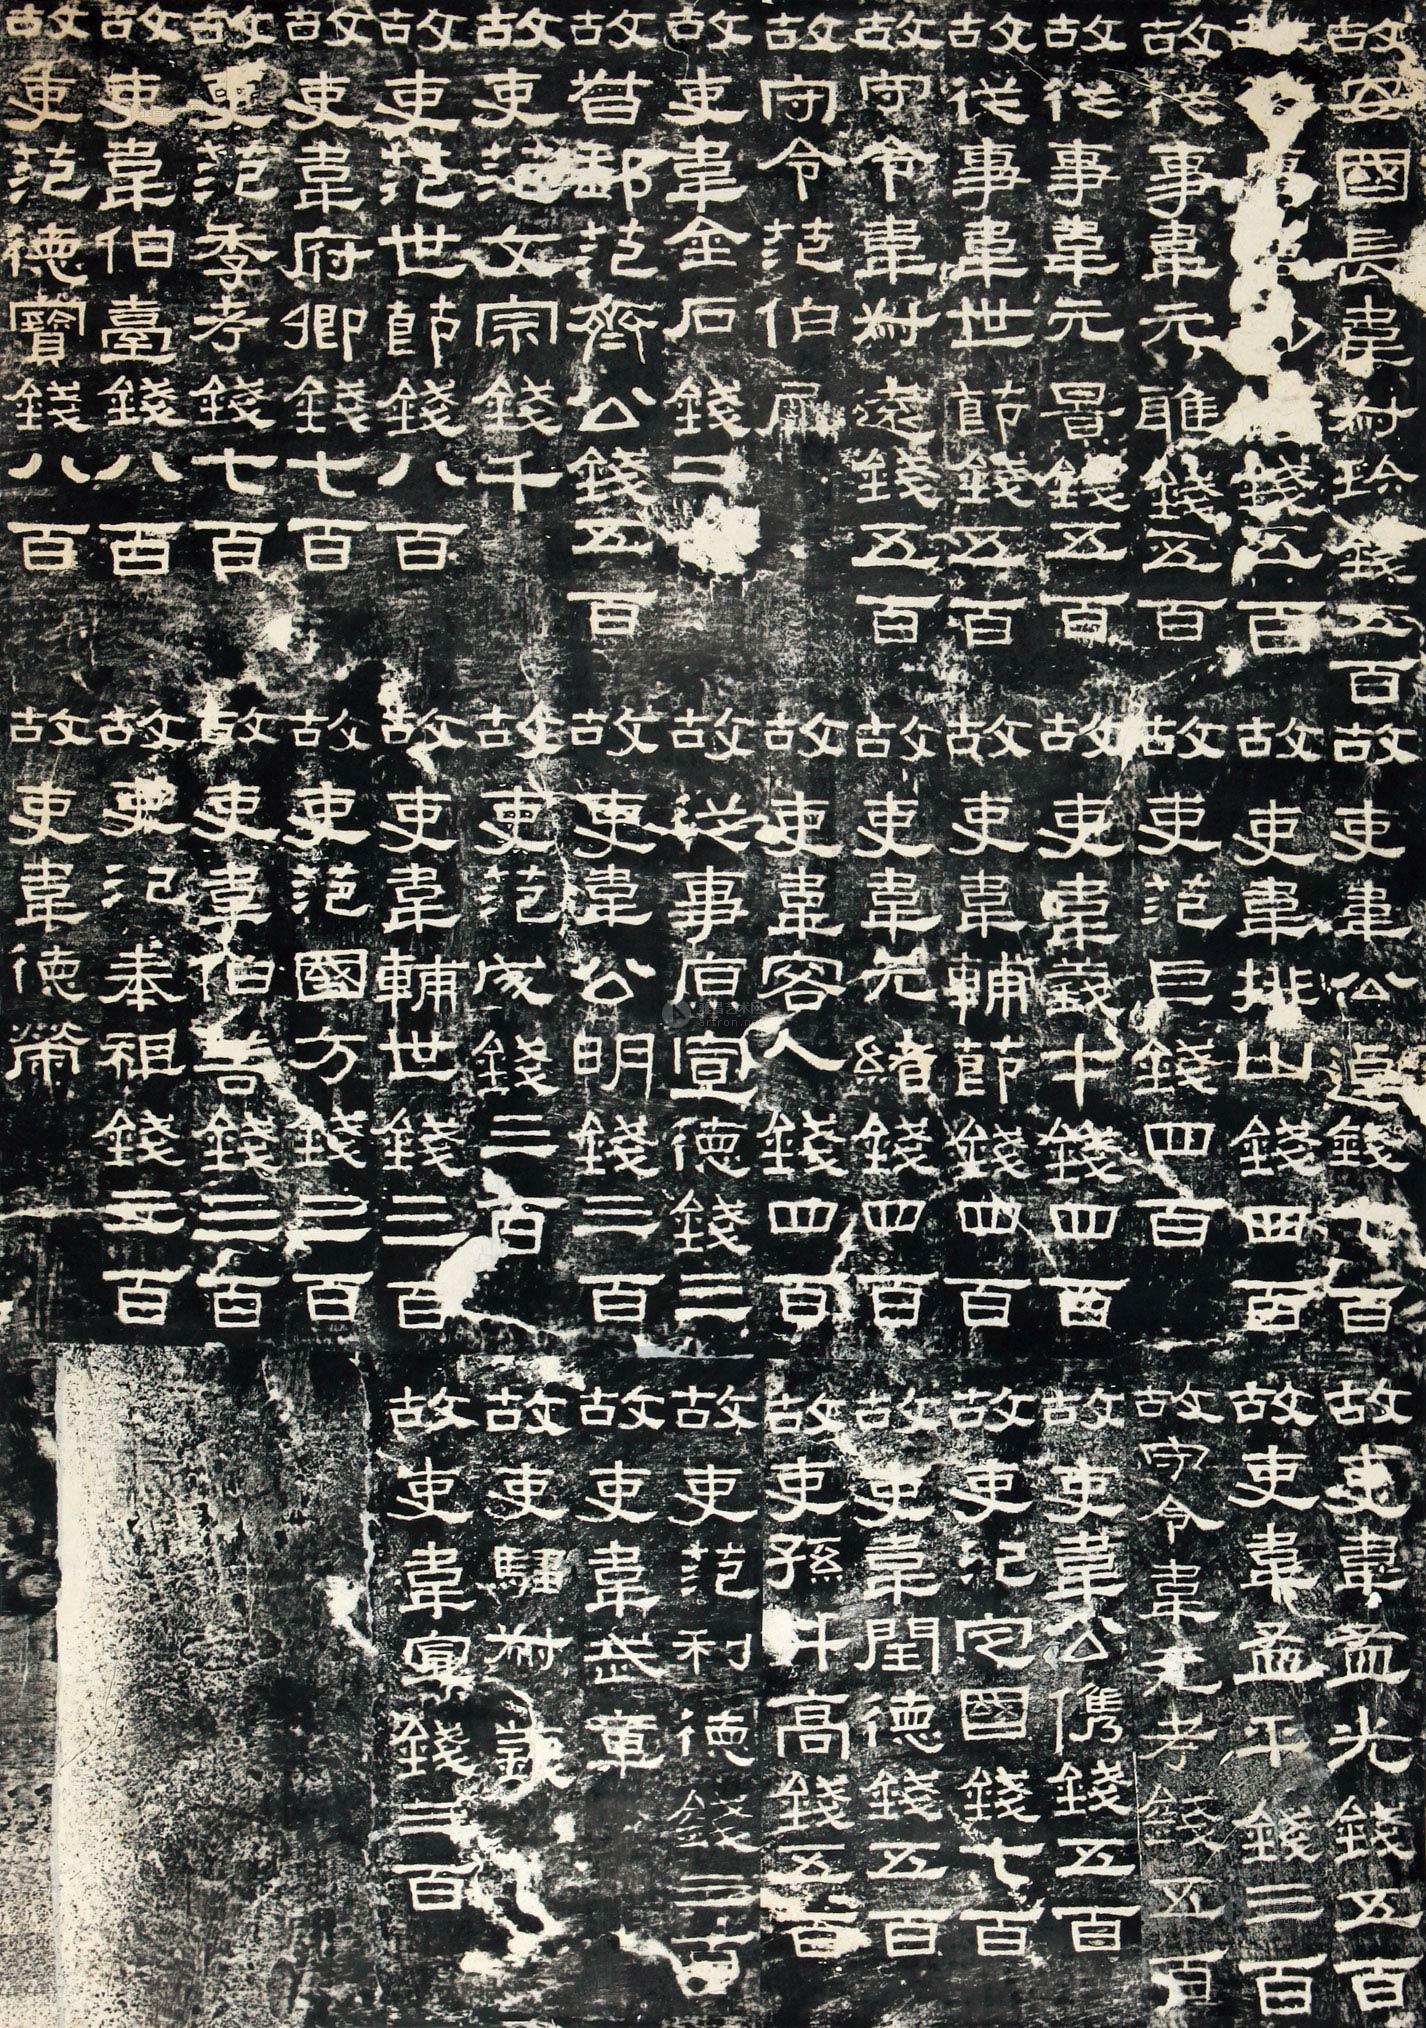 故安國長韋叔珍錢五百
故事錢五百
故從事韋元雅錢五百
故從事韋元景錢五百
故從事韋世節錢五百
故守令韋叔遠錢五百
故守令范伯犀
故吏韋金石錢二
故督郵范齊公錢五百
故吏范文宗錢千
故吏范世節錢八百
故吏韋府卿錢七百
故吏范季考錢七百
故吏韋伯臺錢八百
故吏范德寶錢八百
故吏韋公逴錢七百
故吏韋排山錢四百
故吏范巨錢四百
故吏韋義才錢四百
故吏韋輔節錢四百
故吏韋元緒錢四百
故吏韋客人錢四百
故從事原宣德錢三百
故吏韋公明錢三百
故吏范成錢三百
故吏韋輔世錢三百
故吏范國方錢三百
故吏韋伯善錢三百
故吏氾奉祖錢三百
故吏韋德榮
故吏韋孟光錢五百
故吏韋孟平錢三百
故守令韋元考錢五百
故吏韋公儁錢五百
故吏氾定國錢七百
故吏韋閏德錢五百
故吏孫升高錢五百
故吏范利德錢三百
故吏韋武章
故吏騶叔義
故吏韋宣錢三百